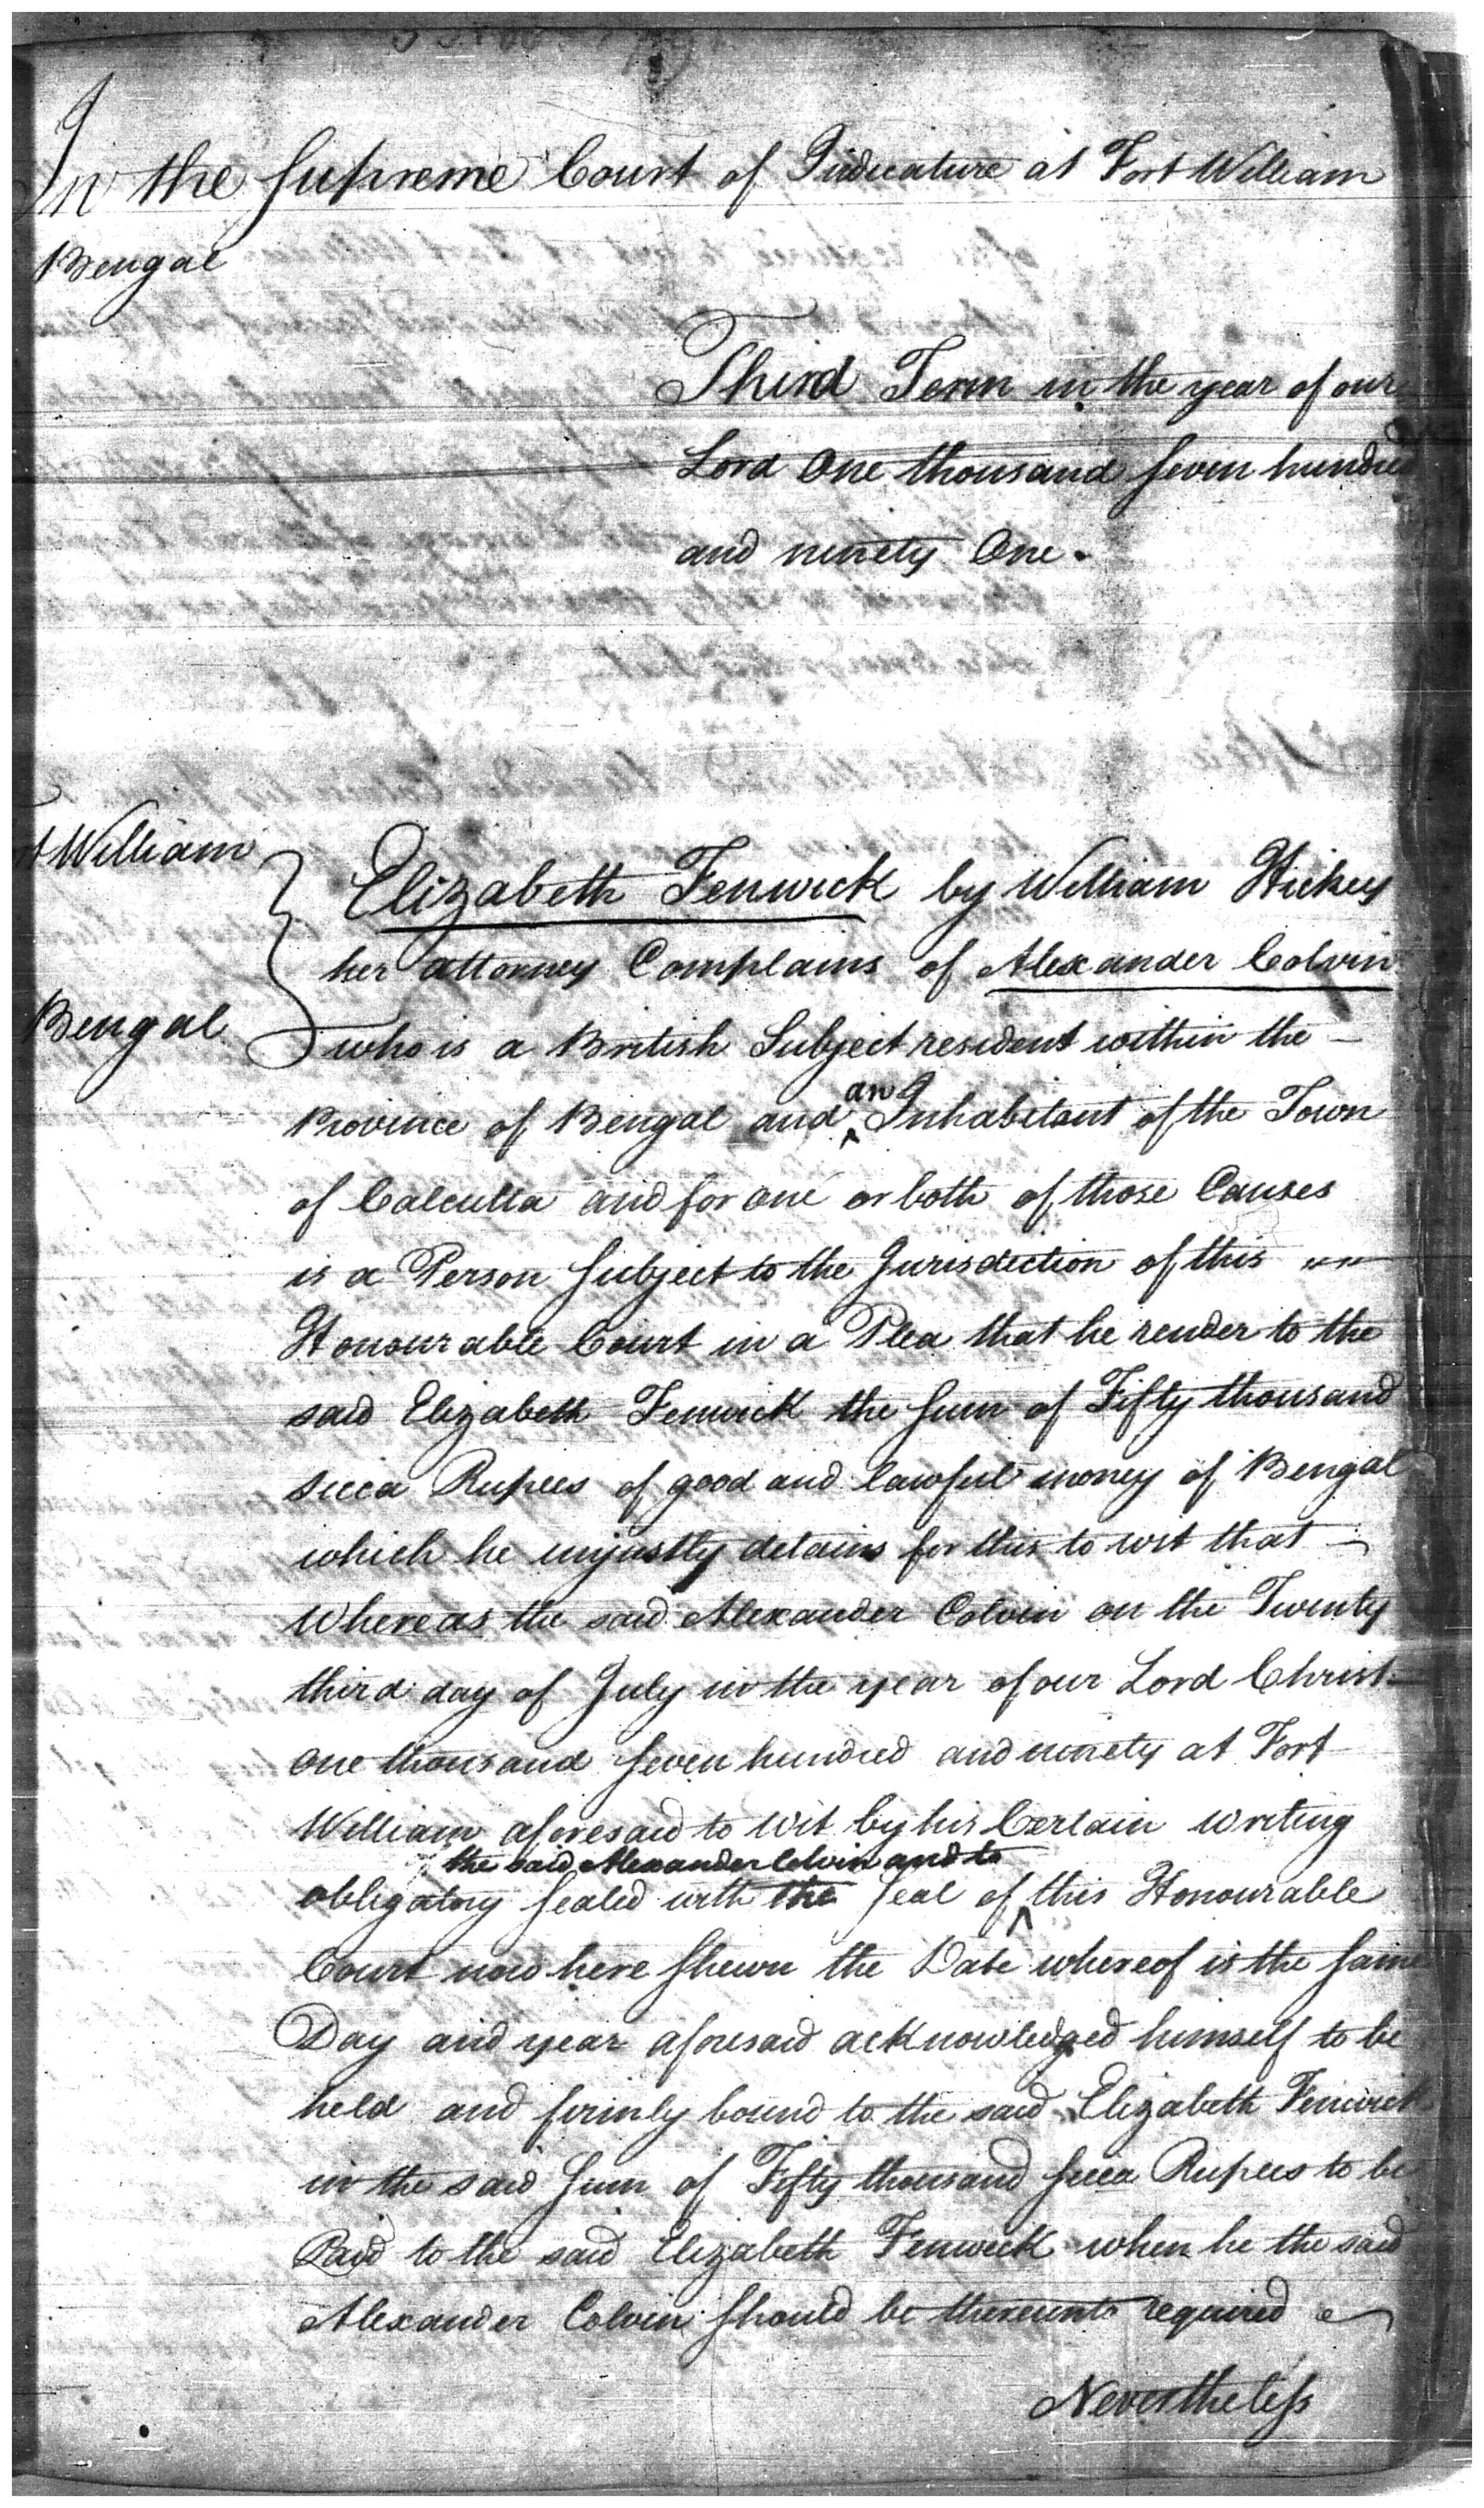 In the Supreme Court of Judicature at Fort William
Bengal
Third Term in the year of our
Lord One thousand Seven hundred
and ninety One.
t William
Elizabeth Fenwick by William Hickey
her attorney Complains of Alexander Colvin
Bengal
who is a British Subject resident within the
Province of Bengal and an Inhabitant of the Town
of Calcutta and for one or both of those Causes
is a Person Subject to the Jurisdiction of this
Honourable Court in a Plea that he render to the
said Elizabeth Fenwick the Sum of Fifty thousand
Sicca Rupees of good and lawful money of Bengal
which he unjustly detains for this to wit that
Whereas the said Alexander Colvin on the Twenty
third day of July in the year of our Lord Christ
One thousand Seven hundred and ninety at Fort
William aforesaid to wit by his Certain Writing
the said Alexander Colvin and to
obligatory Sealed with the Seal of this Honourable
Court now here Shewn the Date whereof is the Same
Day and year aforesaid acknowledged himself to be
held and firmly bound to the said Elizabeth Fenwick
in the said Sum of Fifty thousand Sicca Rupees to be
Paid to the said Elizabeth Fenwick when he the said
Alexander Colvin Should be thereunto required
Nevertheless